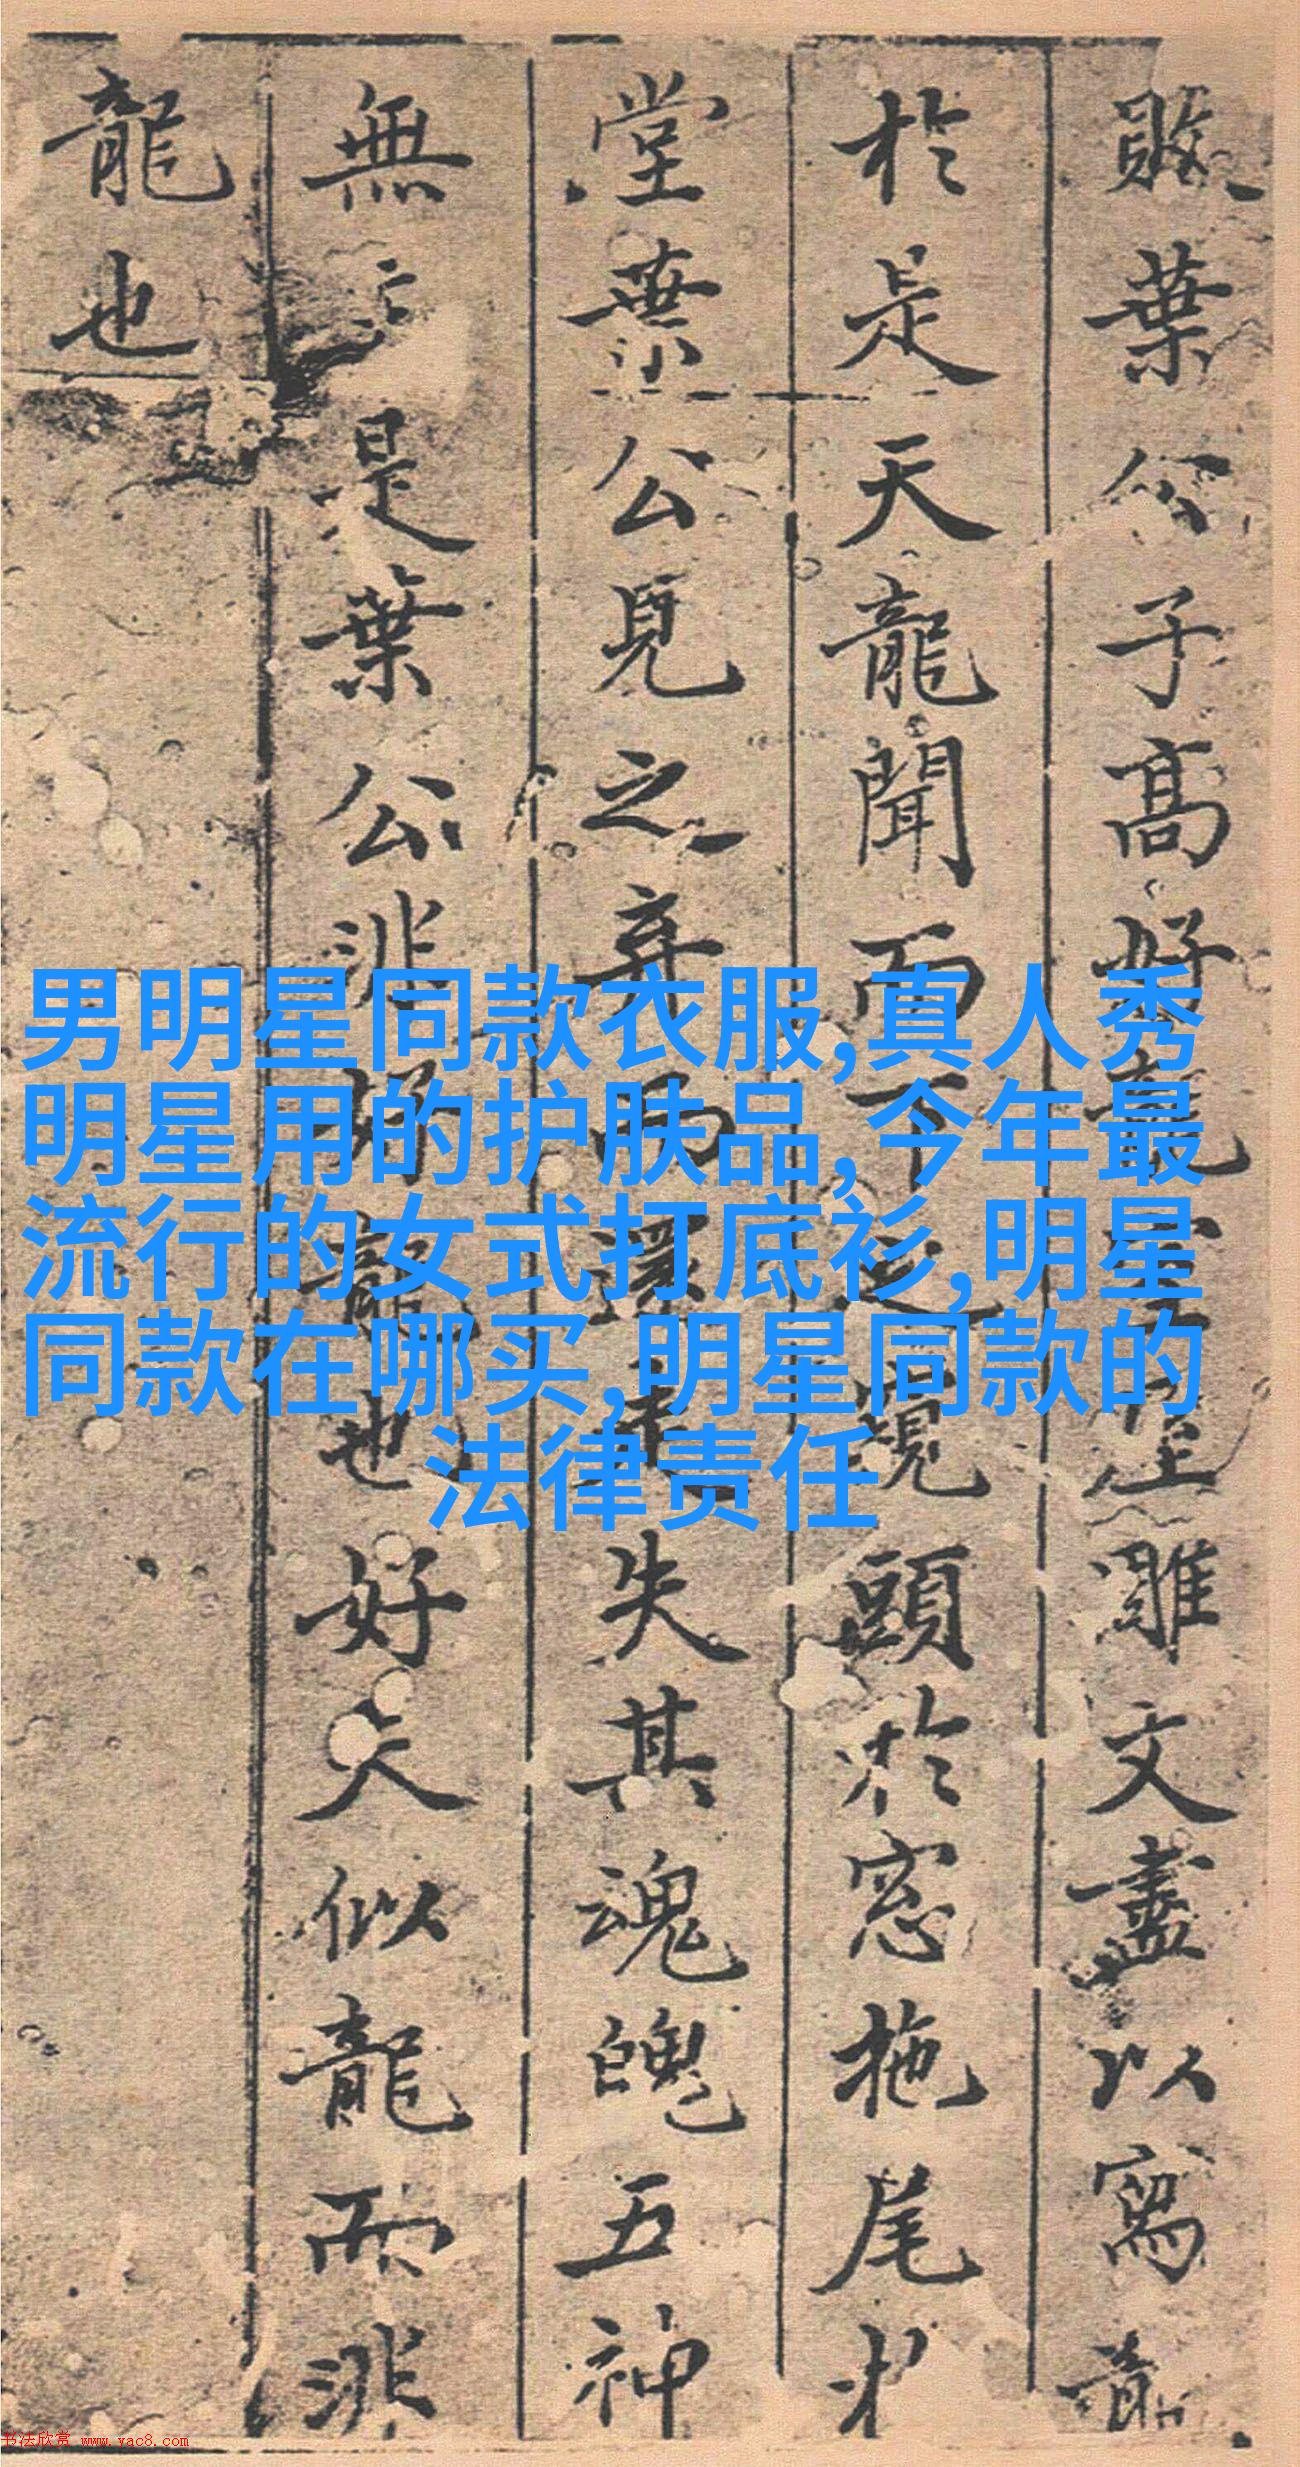 敗葉公子高好龍室屋雕文盡以寫龍
於是天龍聞而下之窺頭於窓拖尾
堂葉公見之弃而還走失其魂魄五神
無主是葉公非好龍也好夫似龍而非
龍也
男明星同款衣服,真人秀
明星用的护肤品,今年最
流行的女式打底衫,明星
同款在哪买,明星同款的
法律责任
书法欣赏 www.yac8.com